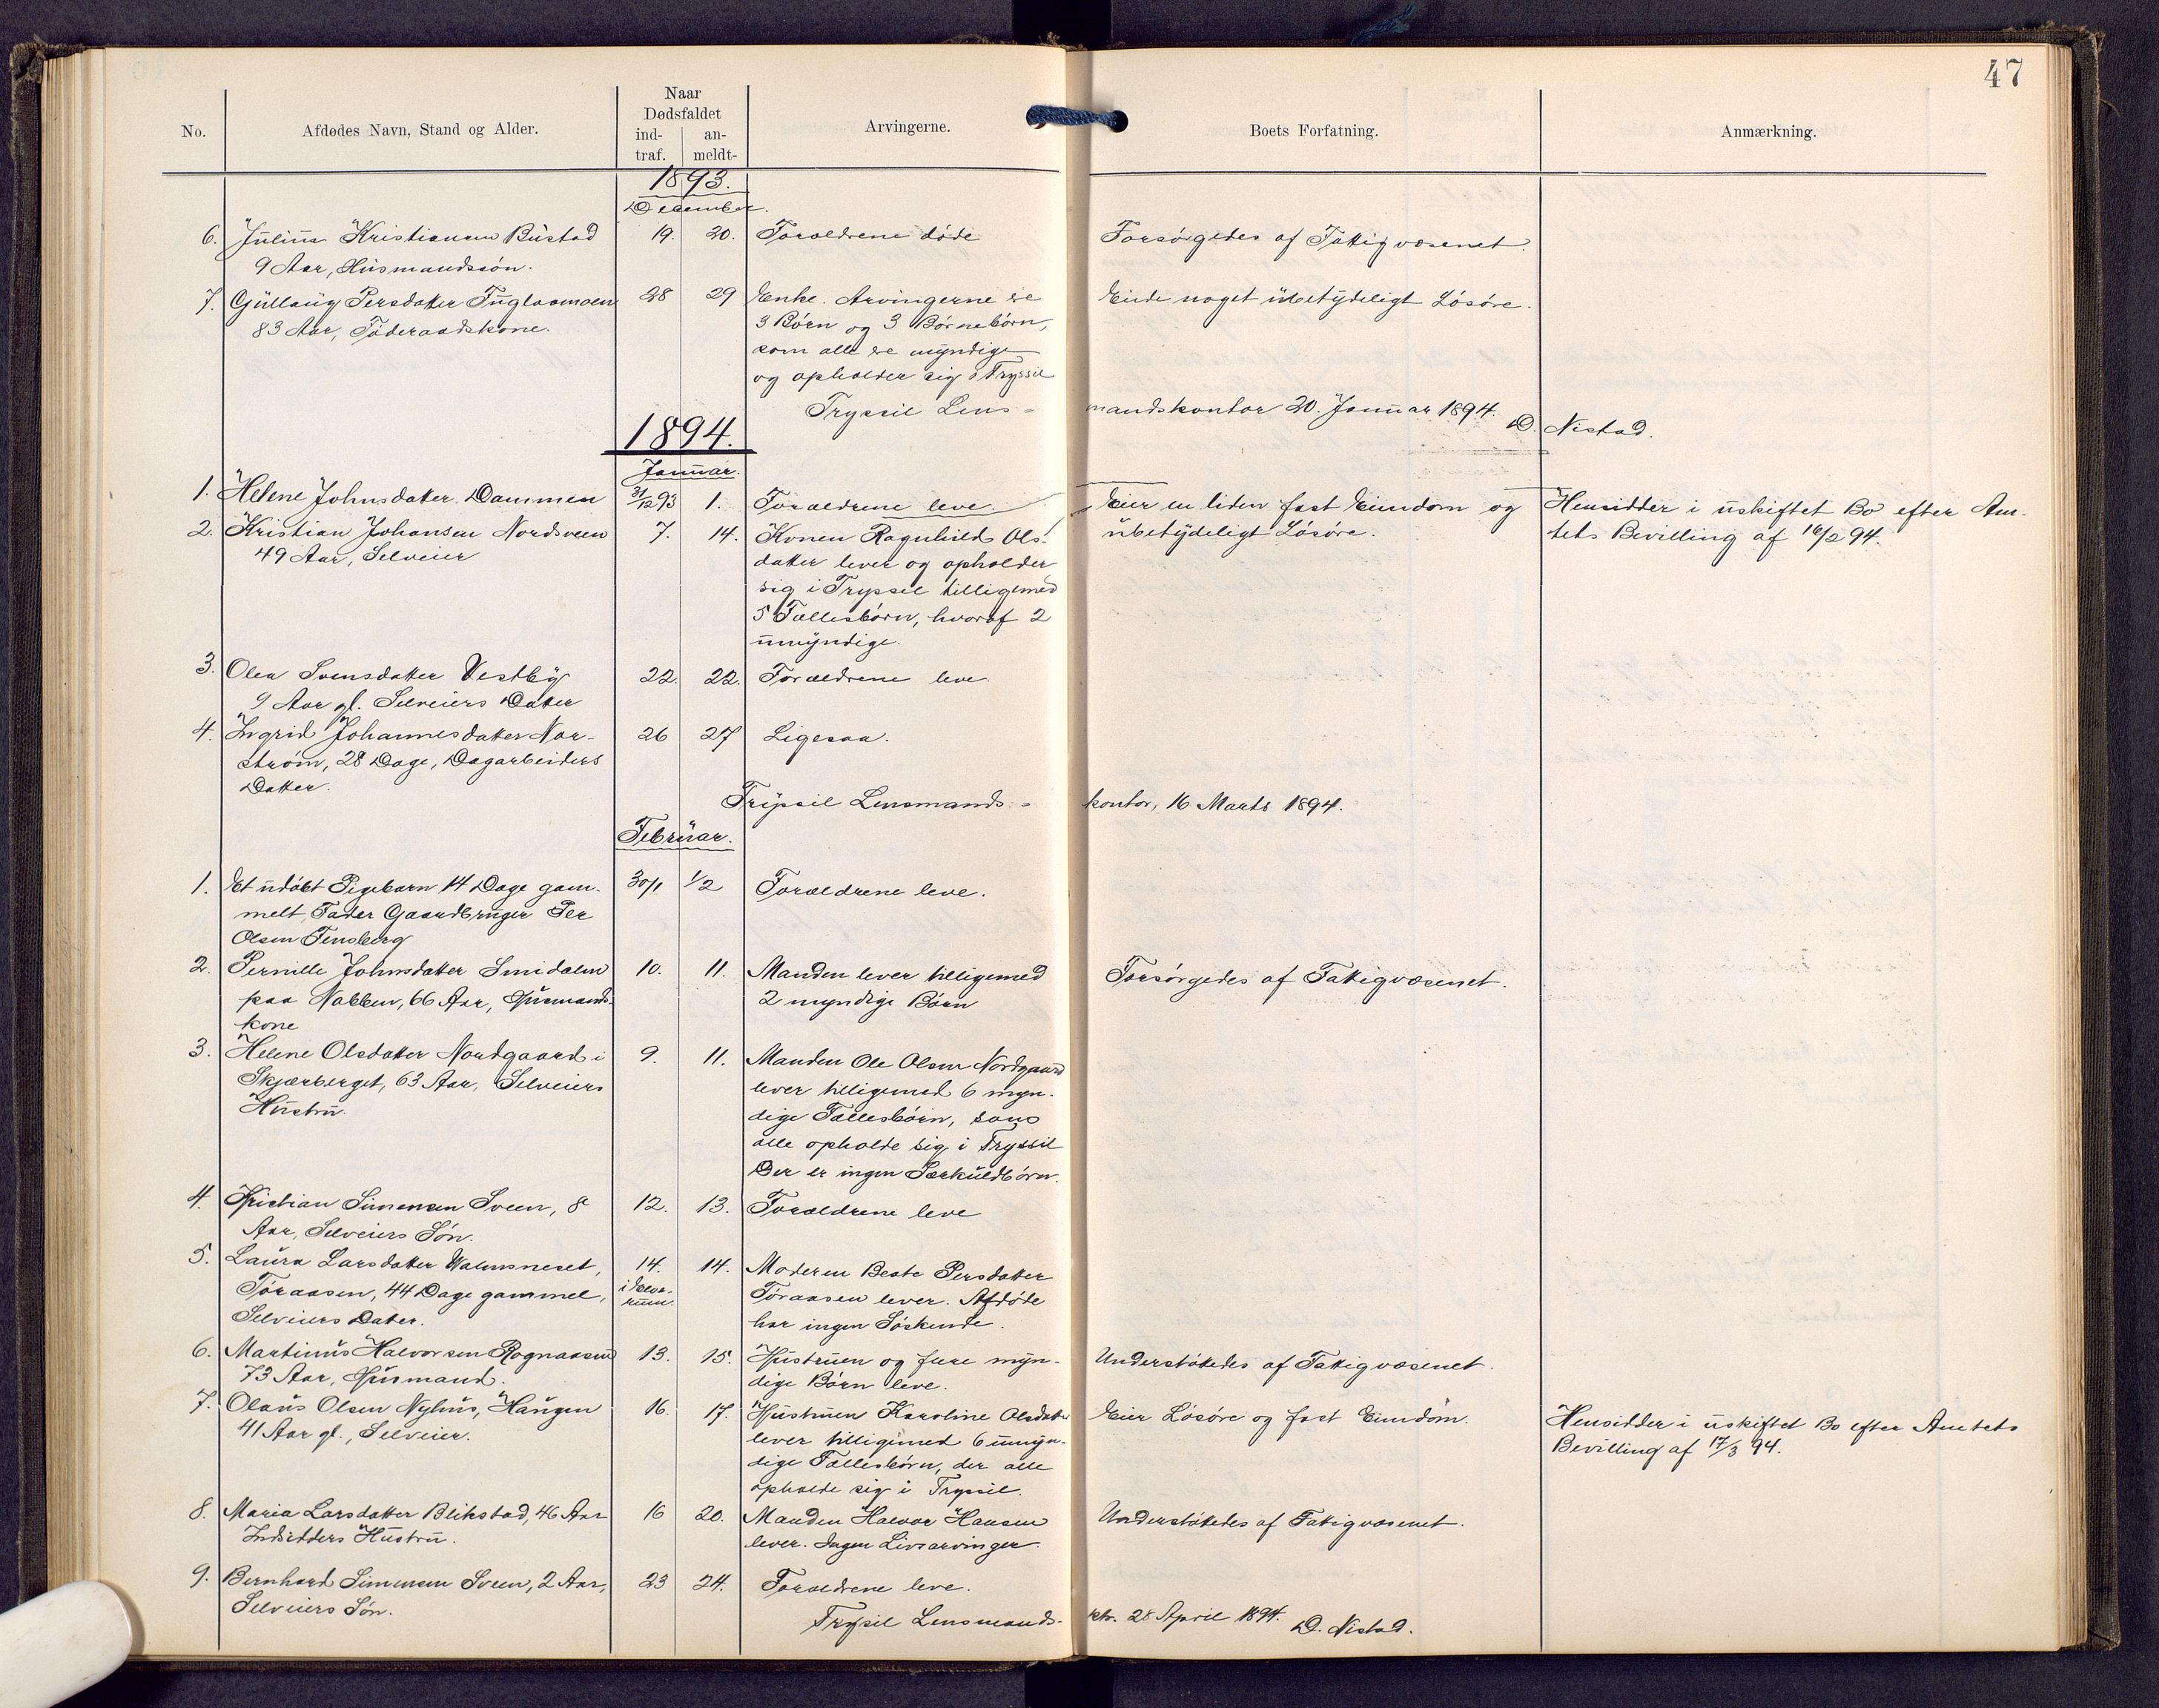 47
No. Afdødes Navn, Stand og Alder. Naar Dødsfaldet ind-traf. an-meldt- Arvingerne. Boets Forfatning. Anmærkning.
1893.
December.
6. Julius Kristiansen Bustad 19. 20. Forældrene døde Forsørgedes af Fattigvæsenet.
9 Aar, Husmandssøn.
7. Gullaug Persdatter Fuglaamoen 28 29 Enke. Arvingerne ere Eiede noget ubetydeligt Løsøre.
83 Aar, Føderaadskone. 3 Børn og 3 Børnebørn,
som alle ere myndige
og opholder sig i Tryssil
Tryssil Lens- mandskontor 20. Januar 1894. D. Nistad.
1894.
Januar.
1. Helene Johnsdatter Dammen 31/12 93 1. Forældrene leve.
2. Kristian Johansen Nordsveen 7. 14. Konen Ragnhild Ols- Eier en liden fast Eiendom og Hensidder i uskiftet Bo efter Am-
49 Aar, Selveier datter lever og opholder ubetydeligt Løsøre. tets Bevilling af 16/2 94.
sig i Tryssil tilligemed
5 Fællesbørn, hvoraf 2
umyndige.
3. Olea Svensdatter Vestby 22. 22. Forældrene leve.
9 Aar gl. Selveiers Datter
4. Ingrid Johannesdatter Nor- 26 27 Ligesaa.
strøm, 28 Dage, Dagarbeiders
Datter.
Trysil Lensmands- kontor, 16 Marts 1894.
Februar.
1. Et udøbt Pigebarn 14 Dage gam- 30/1 1/2 Forældrene leve.
melt, Fader Gaardbruger Per
Olsen Tensberg
2. Pernille Johnsdatter Smidalen 10. 11. Manden lever tilligemed Forsørgedes af Fattigvæsenet.
paa Nabben, 66 Aar, Husmands- 2 myndige Børn
kone
3. Helene Olsdatter Nordgaard i 9. 11. Manden Ole Olsen Nordgaard
Skjærberget, 63 Aar, Selveiers lever tilligemed 6 myn-
Hustru. dige Fællesbørn, som
alle opholde sig i Tryssil
Der er ingen Særkuldbørn.
4. Kristian Simensen Sveen, 8 12. 13. Forældrene leve
Aar, Selveiers Søn.
5. Laura Larsdatter Malmneset, 14. 14. Moderen Beate Persdatter
Føraasen, 44 Dage gammel, i Elverum. Føraasen lever. Afdøde
Selveiers Datter. har ingen Søskende.
6. Martinus Halvorsen Rognaasen 13. 15. Hustruen og flere myn- Understøttedes af Fattigvæsenet.
73 Aar, Husmand. dige Børn leve.
7. Olaus Olsen Nyhus, Haugen 16. 17. Hustruen Karoline Olsdatter Eier Løsøre og fast Eiendom. Hensidder i uskiftet Bo efter Amtets
41 Aar gl., Selveier. lever tilligemed 6 umyn- Bevilling af 17/3 94.
dige Fællesbørn, der alle
opholde sig i Trysil.
8. Maria Larsdatter Blikstad, 46 Aar 16 20. Manden Halvor Hansen Understøttedes af Fattigvæsenet.
Indsidders Hustru. lever. Ingen Livsarvinger.
9. Bernhard Simensen Sveen, 2 Aar, 23 24. Forældrene leve.
Selveiers Søn.
Trysil Lensmands- ktr. 28 April 1894. D. Nistad.